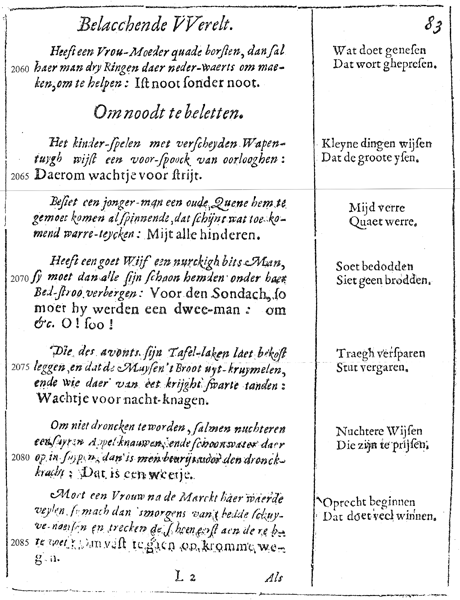 Belacchende VVerelt. 83
Heeft een Vrou-Moeder quade borsten, dan sal
2060 haer man dry Ringen daer neder-waerts om mae-
ken, om te helpen: Ist noot sonder noot.
Wat doet genesen
Dat wort ghepresen.
Om noodt te beletten.
Het kinder-spelen met verscheyden Wapen-
tuygh wijst een voor-spoock van oorlooghen:
2065 Daerom wachtje voor strijt.
Kleyne dingen wijsen
Dat de groote ysen.
Besiet een jonger-man een oude Quene hem te
gemoet komen al spinnende, dat schijnt wat toe ko-
mend warre-teycken: Mijt alle hinderen.
Mijd verre
Quaet werre.
Heeft een goet Wijf een nurckigh bits Man,
2070 sy moet dan alle sijn schoon hemden onder haer
Bed-stroo verbergen: Voor den Sondach, so
moet hy werden een dwee-man: om
&c. O! soo!
Soet bedodden
Siet geen brodden.
Die des avonts sijn Tafel-laken laet bekost
2075 leggen, en dat de Muysen 't Broot uyt-kruymelen,
ende wie daer van eet krijght swarte tanden:
Wachtje voor nacht-knagen.
Traegh versparen
Stut vergaren.
Om niet droncken te worden, salmen nuchteren
een suyren Appel knauwen, ende schoon water daer
2080 op in suypen, dan is men bevrijt voor den dronck-
kracht: Dat is een weetje.
Nuchtere Wijsen
Die zijn te prijsen.
Moet een Vrouw na de Marckt haer waerde
veylen, so mach dan smorgens van't bedde schuy-
ve en trecken de
2085 te om vast te gaen op kromme we-
gen.
Oprecht beginnen
Dat doet veel winnen.
L 2 Als